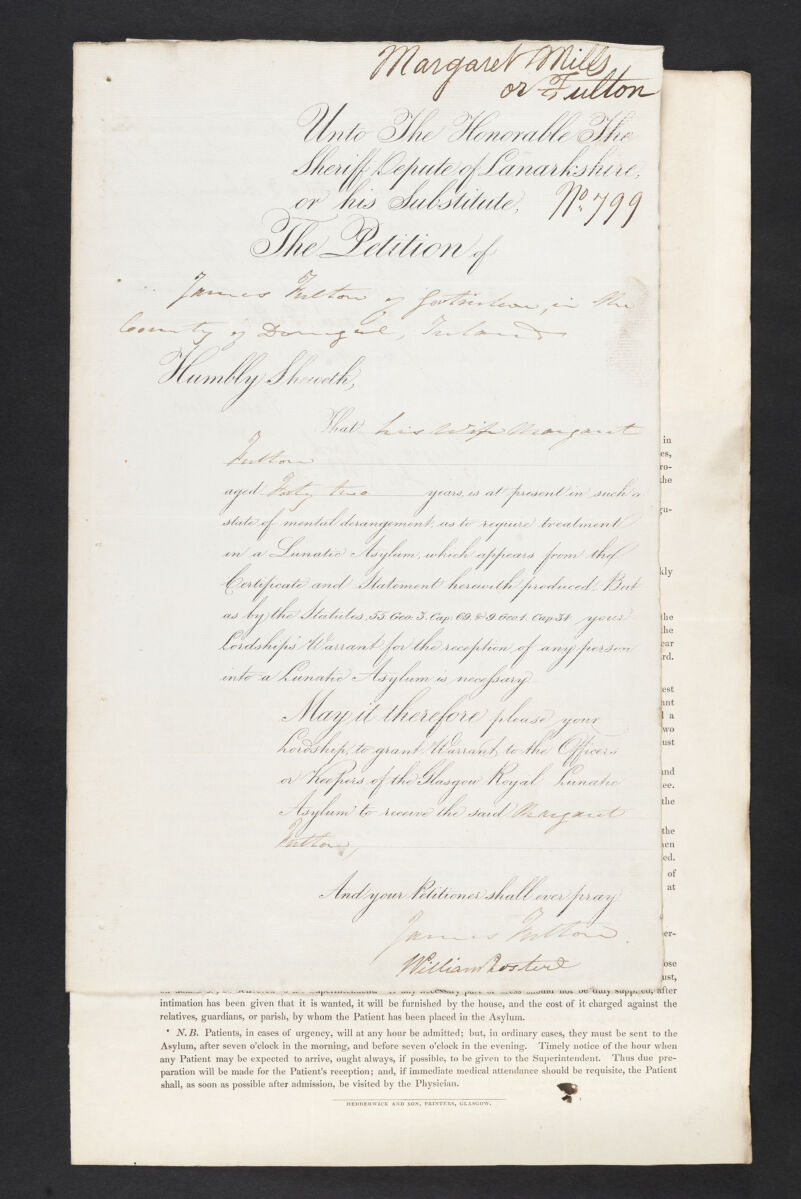 Margaret Mills
or Fulton
Unto The Honorable The
Sheriff Depute of Lanarkshire,
or his Substitute,
No. 799
The Petition of
James Fulton of in the
County of Donegal, Ireland
Humbly Sheweth,
That his Wife Margaret
Fulton
aged Forty two years, is at present in such a
state of mental derangement, as to require treatment
in a Lunatic Asylum, which appears from the
Certificate and Statement herewith produced. But
as by the Statutes, 55 Geo. 3. Cap. 69. & 9. Geo 4. Cap 34 your
Lordship's Warrant for the reception of any person
into a Lunatic Asylum is necessary
May it therefore please your
Lordship, to grant Warrant, to the Officers
or Keepers of the Glasgow Royal Lunatic
Asylum to receive the said Margaret
Fulton,
And your Petitioner shall ever pray
James Fulton
William
in
es,
ro-
the
gu-
kly
the
the
ear
rd.
est
ant
d a
two
ust
and
ee.
the
the
en
ed.
of
at
er-
ose
ust,
should not be duly supplied, after
intimation has been given that it is wanted, it will be furnished by the house, and the cost of it charged against the
relatives, guardians, or parish, by whom the Patient has been placed in the Asylum.
* N.B. Patients, in cases of urgency, will at any hour be admitted; but, in ordinary cases, they must be sent to the
Asylum, after seven o'clock in the morning, and before seven o'clock in the evening. Timely notice of the hour when
any Patient may be expected to arrive, ought always, if possible, to be given to the Superintendent. Thus due pre-
paration will be made for the Patient's reception; and, if immediate medical attendance should be requisite, the Patient
shall, as soon as possible after admission, be visited by the Physician.
HEDDERWICK AND SON, PRINTERS, GLASGOW.